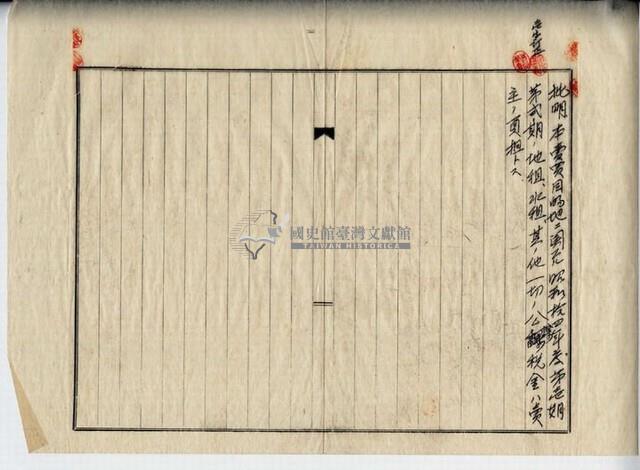 批明本賣買目的地ニ関スル昭和拾四年度第壱期
第弍期ノ地租、水租、其ノ他一切ノ公課税金ハ賣
主ノ負担トス
國史館臺灣文獻館
TAIWAN HISTORICA